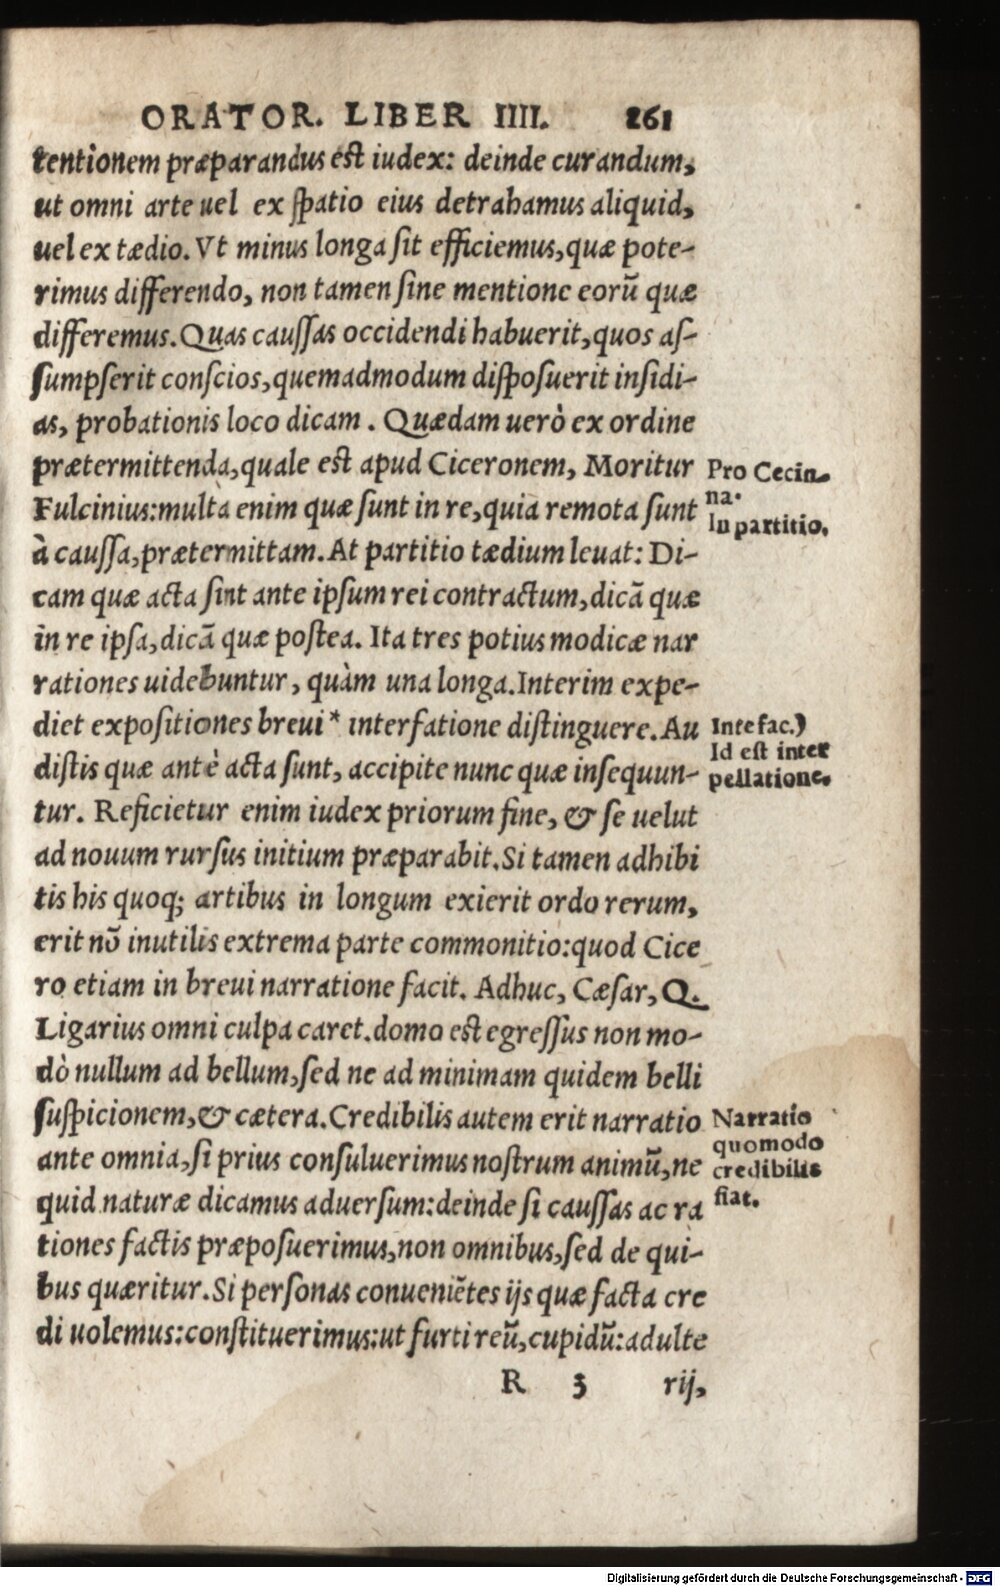 ORATOR. LIBER IIII. 261
tentionem præparandus est iudex: deinde curandum,
ut omni arte uel ex spatio eius detrahamus aliquid,
uel ex tædio. Vt minus longa sit efficiemus, quæ pote-
rimus differendo, non tamen sine mentione eorū quæ
differemus. Quas caussas occidendi habuerit, quos as-
sumpserit conscios, quemadmodum disposuerit insidi-
as, probationis loco dicam. Quædam uerò ex ordine
prætermittenda, quale est apud Ciceronem, Moritur
Fulcinius: multa enim quæ sunt in re, quia remota sunt
à caussa, prætermittam. At partitio tædium leuat: Di-
cam quæ acta sint ante ipsum rei contractum, dicā quæ
in re ipsa, dicā quæ postea. Ita tres potius modicæ nar
rationes uidebuntur, quàm una longa. Interim expe-
diet expositiones breui* interfatione distinguere. Au
distis quæ antè acta sunt, accipite nunc quæ insequun-
tur. Reficietur enim iudex priorum fine, & se uelut
ad nouum rursus initium præparabit. Si tamen adhibi
tis his quoq; artibus in longum exierit ordo rerum,
erit nō inutilis extrema parte commonitio: quod Cice
ro etiam in breui narratione facit. Adhuc, Cæsar, Q.
Ligarius omni culpa caret. domo est egressus non mo-
dò nullum ad bellum, sed ne ad minimam quidem belli
suspicionem, & cætera. Credibilis autem erit narratio
ante omnia, si prius consuluerimus nostrum animū, ne
quid naturæ dicamus aduersum: deinde si caussas ac ra
tiones factis præposuerimus, non omnibus, sed de qui-
bus quæritur. Si personas conueniētes ijs quæ facta cre
di uolemus: constituerimus: ut furti reū, cupidū: adulte
R 3 rij,
Pro Cecin-
na.
In partitio.
Intefac.)
Id est inter
pellatione.
Narratio
quomodo
credibilis
fiat.
Digitalisierung gefördert durch die Deutsche Forschungsgemeinschaft - DFG